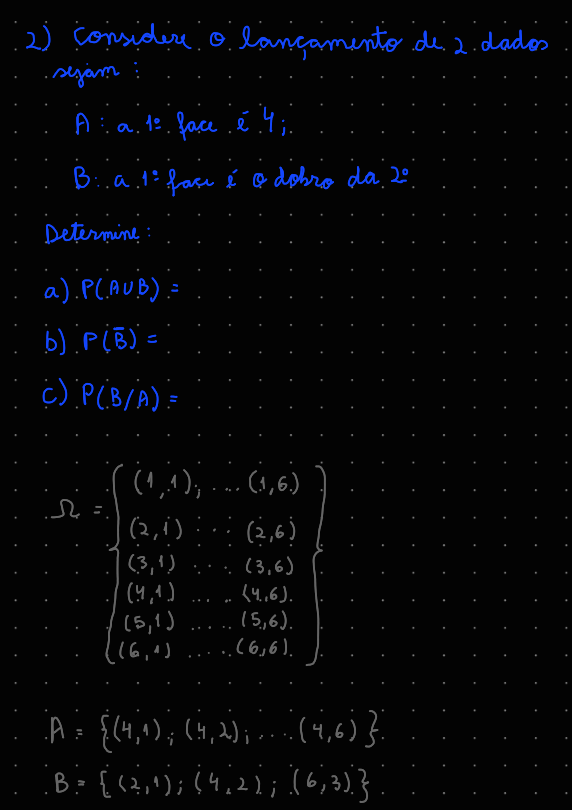 2) Considere o lançamento de 2 dados
sejam :
A: a 1º face é 4;
B: a 1º face é o dobro da 2º
Determine:
a) P(A∪B) =
b) P(B̄) =
c) P(B/A) =
Ω = { (1,1); ... (1,6)
(2,1) ... (2,6)
(3,1) ... (3,6)
(4,1) ... (4,6)
(5,1) ... (5,6)
(6,1) ... (6,6) }
A = {(4,1); (4,2); ... (4,6)}
B = { (2,1); (4,2); (6,3)}